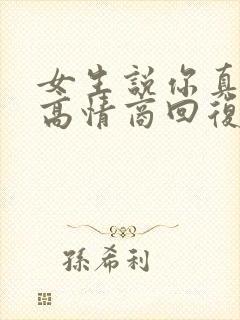 女生說你真
高情商回復
孫希利